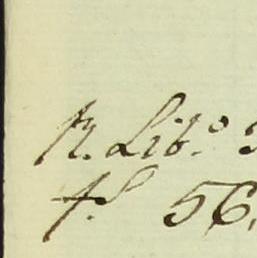 R. Lib.º
fl. 56.